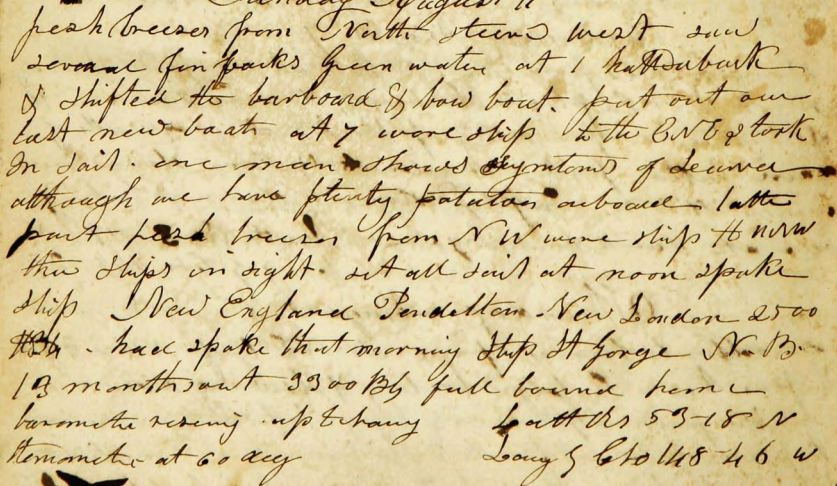 Sunday August 11
fresh breezes from North steerd west saw
several finbacks Green water at 1
& shifted the larboard & bow boat. put out our
last new boat at 7 wore ship to the ENE & took
in sail. one man shows symtoms of scurvea
although we have plenty potatoes onboard latter
part fresh breezes from NW wore ship to
ships in sight. set all sail at noon spoke
ship New England Pendelton New London 2500
Bb. had spoke that morning Ship St Gorge N. B.
13 months out 3300 Bb full bound home
barometer
Latt Obs 53-18 N
at 60 deg
Long 148-46 w